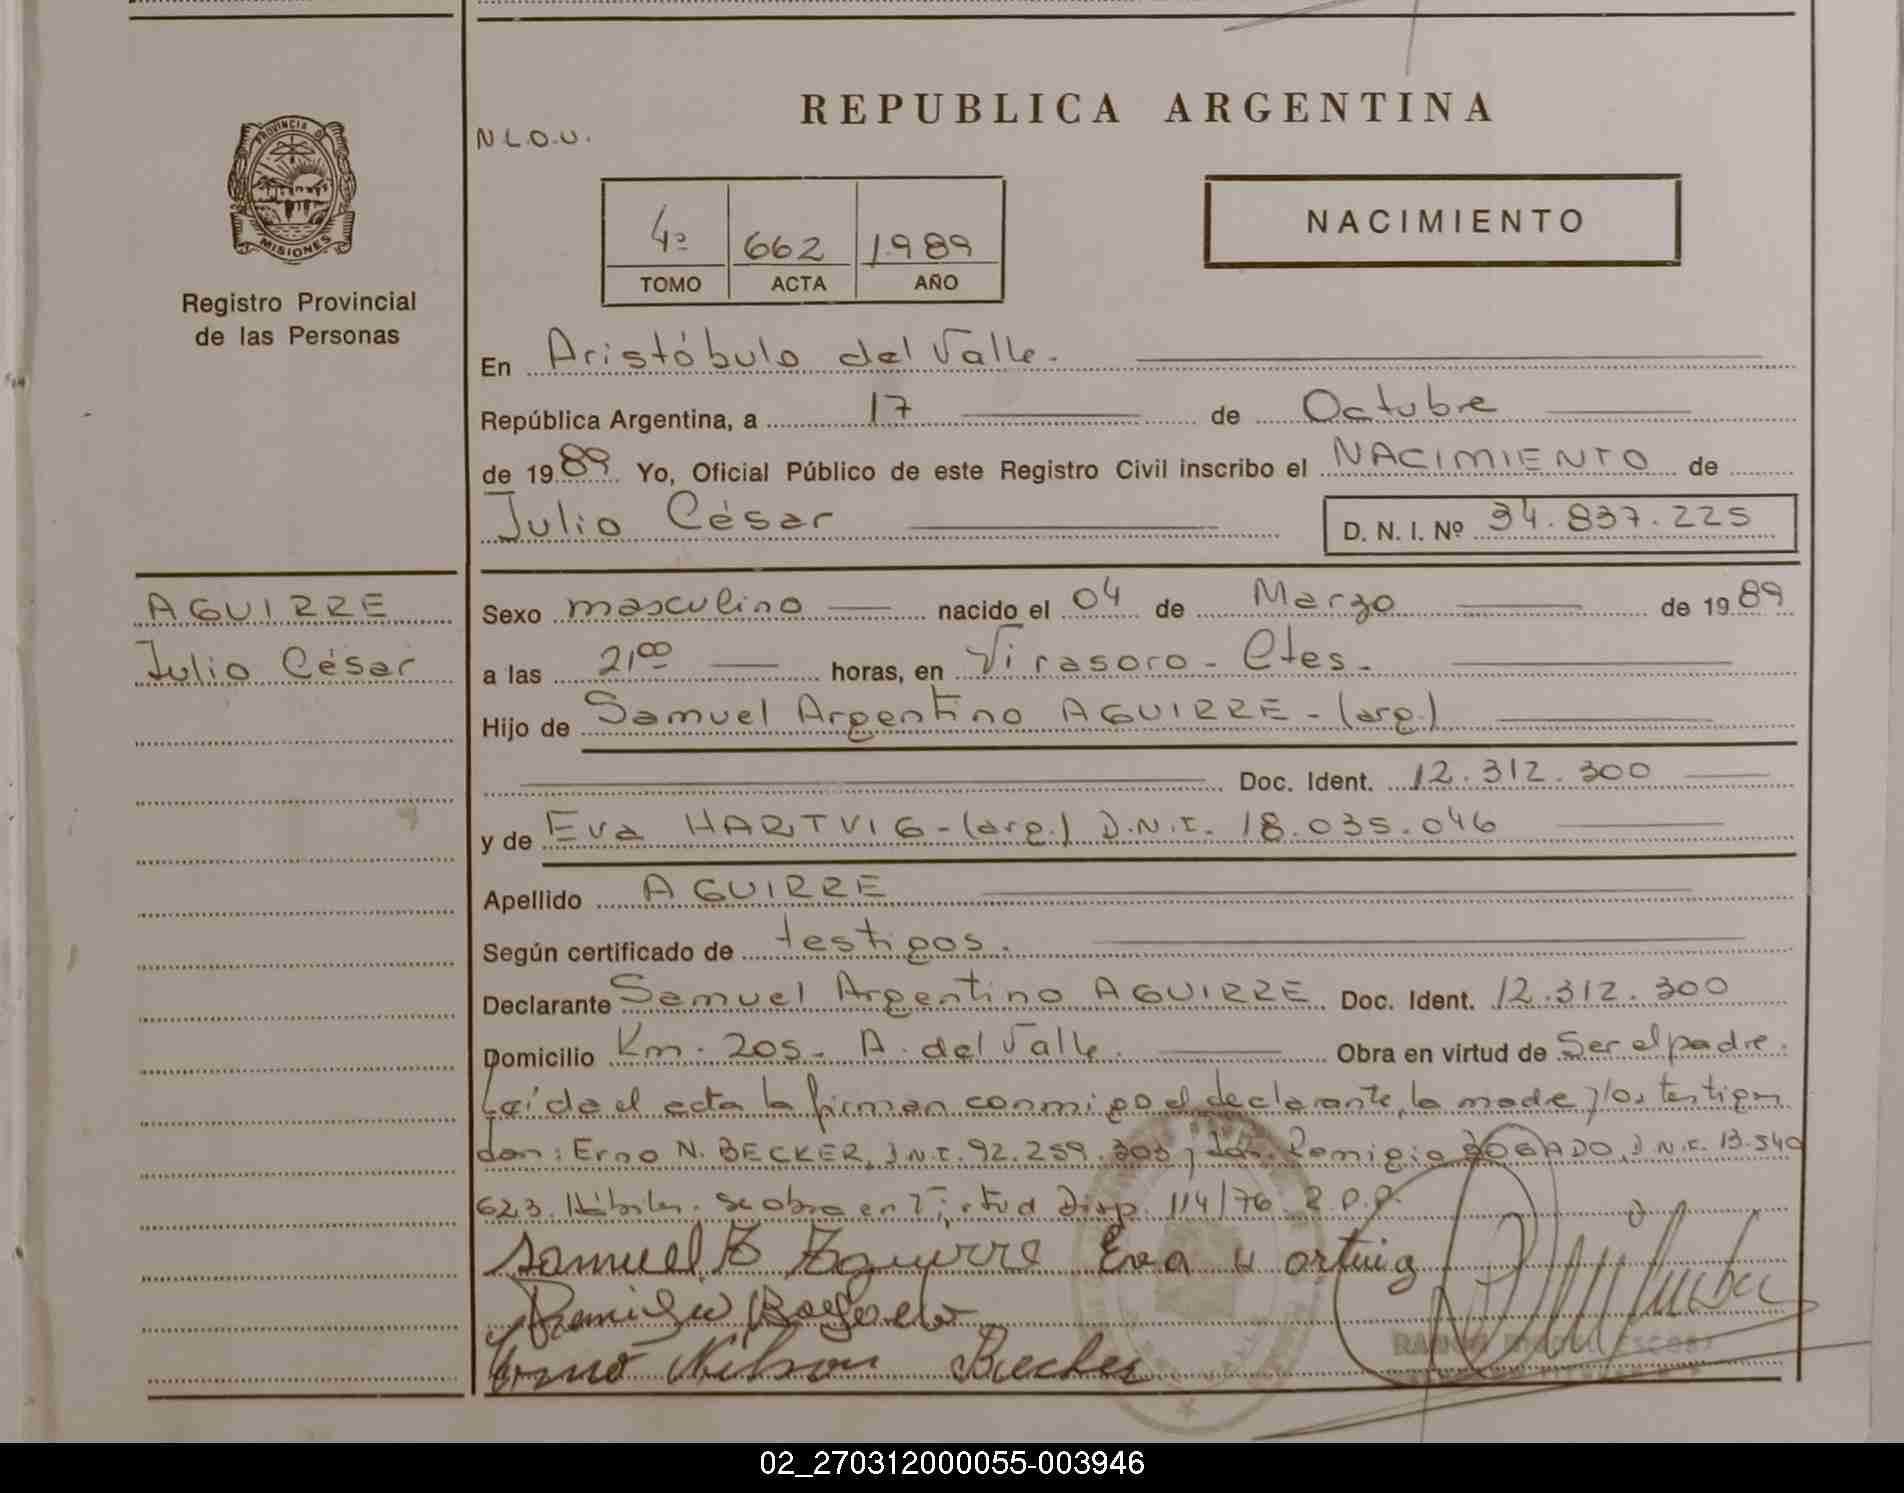 PROVINCIA DE
MISIONES
Registro Provincial
de las Personas
AGUIRRE
Julio César
REPUBLICA ARGENTINA
N.L.O.U.
4º 662 1989
TOMO ACTA AÑO
NACIMIENTO
En Aristóbulo del Valle.
República Argentina, a 17 de Octubre
de 1989 Yo, Oficial Público de este Registro Civil inscribo el NACIMIENTO de
Julio César D. N. I. Nº 34.837.225
Sexo masculino nacido el 04 de Marzo de 1989
a las 21⁰⁰ horas, en Virasoro - Ctes.
Hijo de Samuel Argentino AGUIRRE - (arg.)
Doc. Ident. 12.312.300
y de Eva HARTVIG - (arg.) D.N.I. 18.035.046
Apellido AGUIRRE
Según certificado de testigos.
Declarante Samuel Argentino AGUIRRE Doc. Ident. 12.312.300
Domicilio Km. 205 - A. del Valle. Obra en virtud de Ser el padre.
Leída el acta la firman conmigo el declarante, la madre y los testigos
don: Erno N. BECKER, D.N.I. 92.259.303 y don Remigio BOGADO, D.N.I. 13.540
623. Hábiles. Se obra en Virtud Disp. 114/76 R.P.P.
Samuel A Aguirre Eva u ortuig
Remigio Bogado
Erno Nelson Becker
02_270312000055-003946